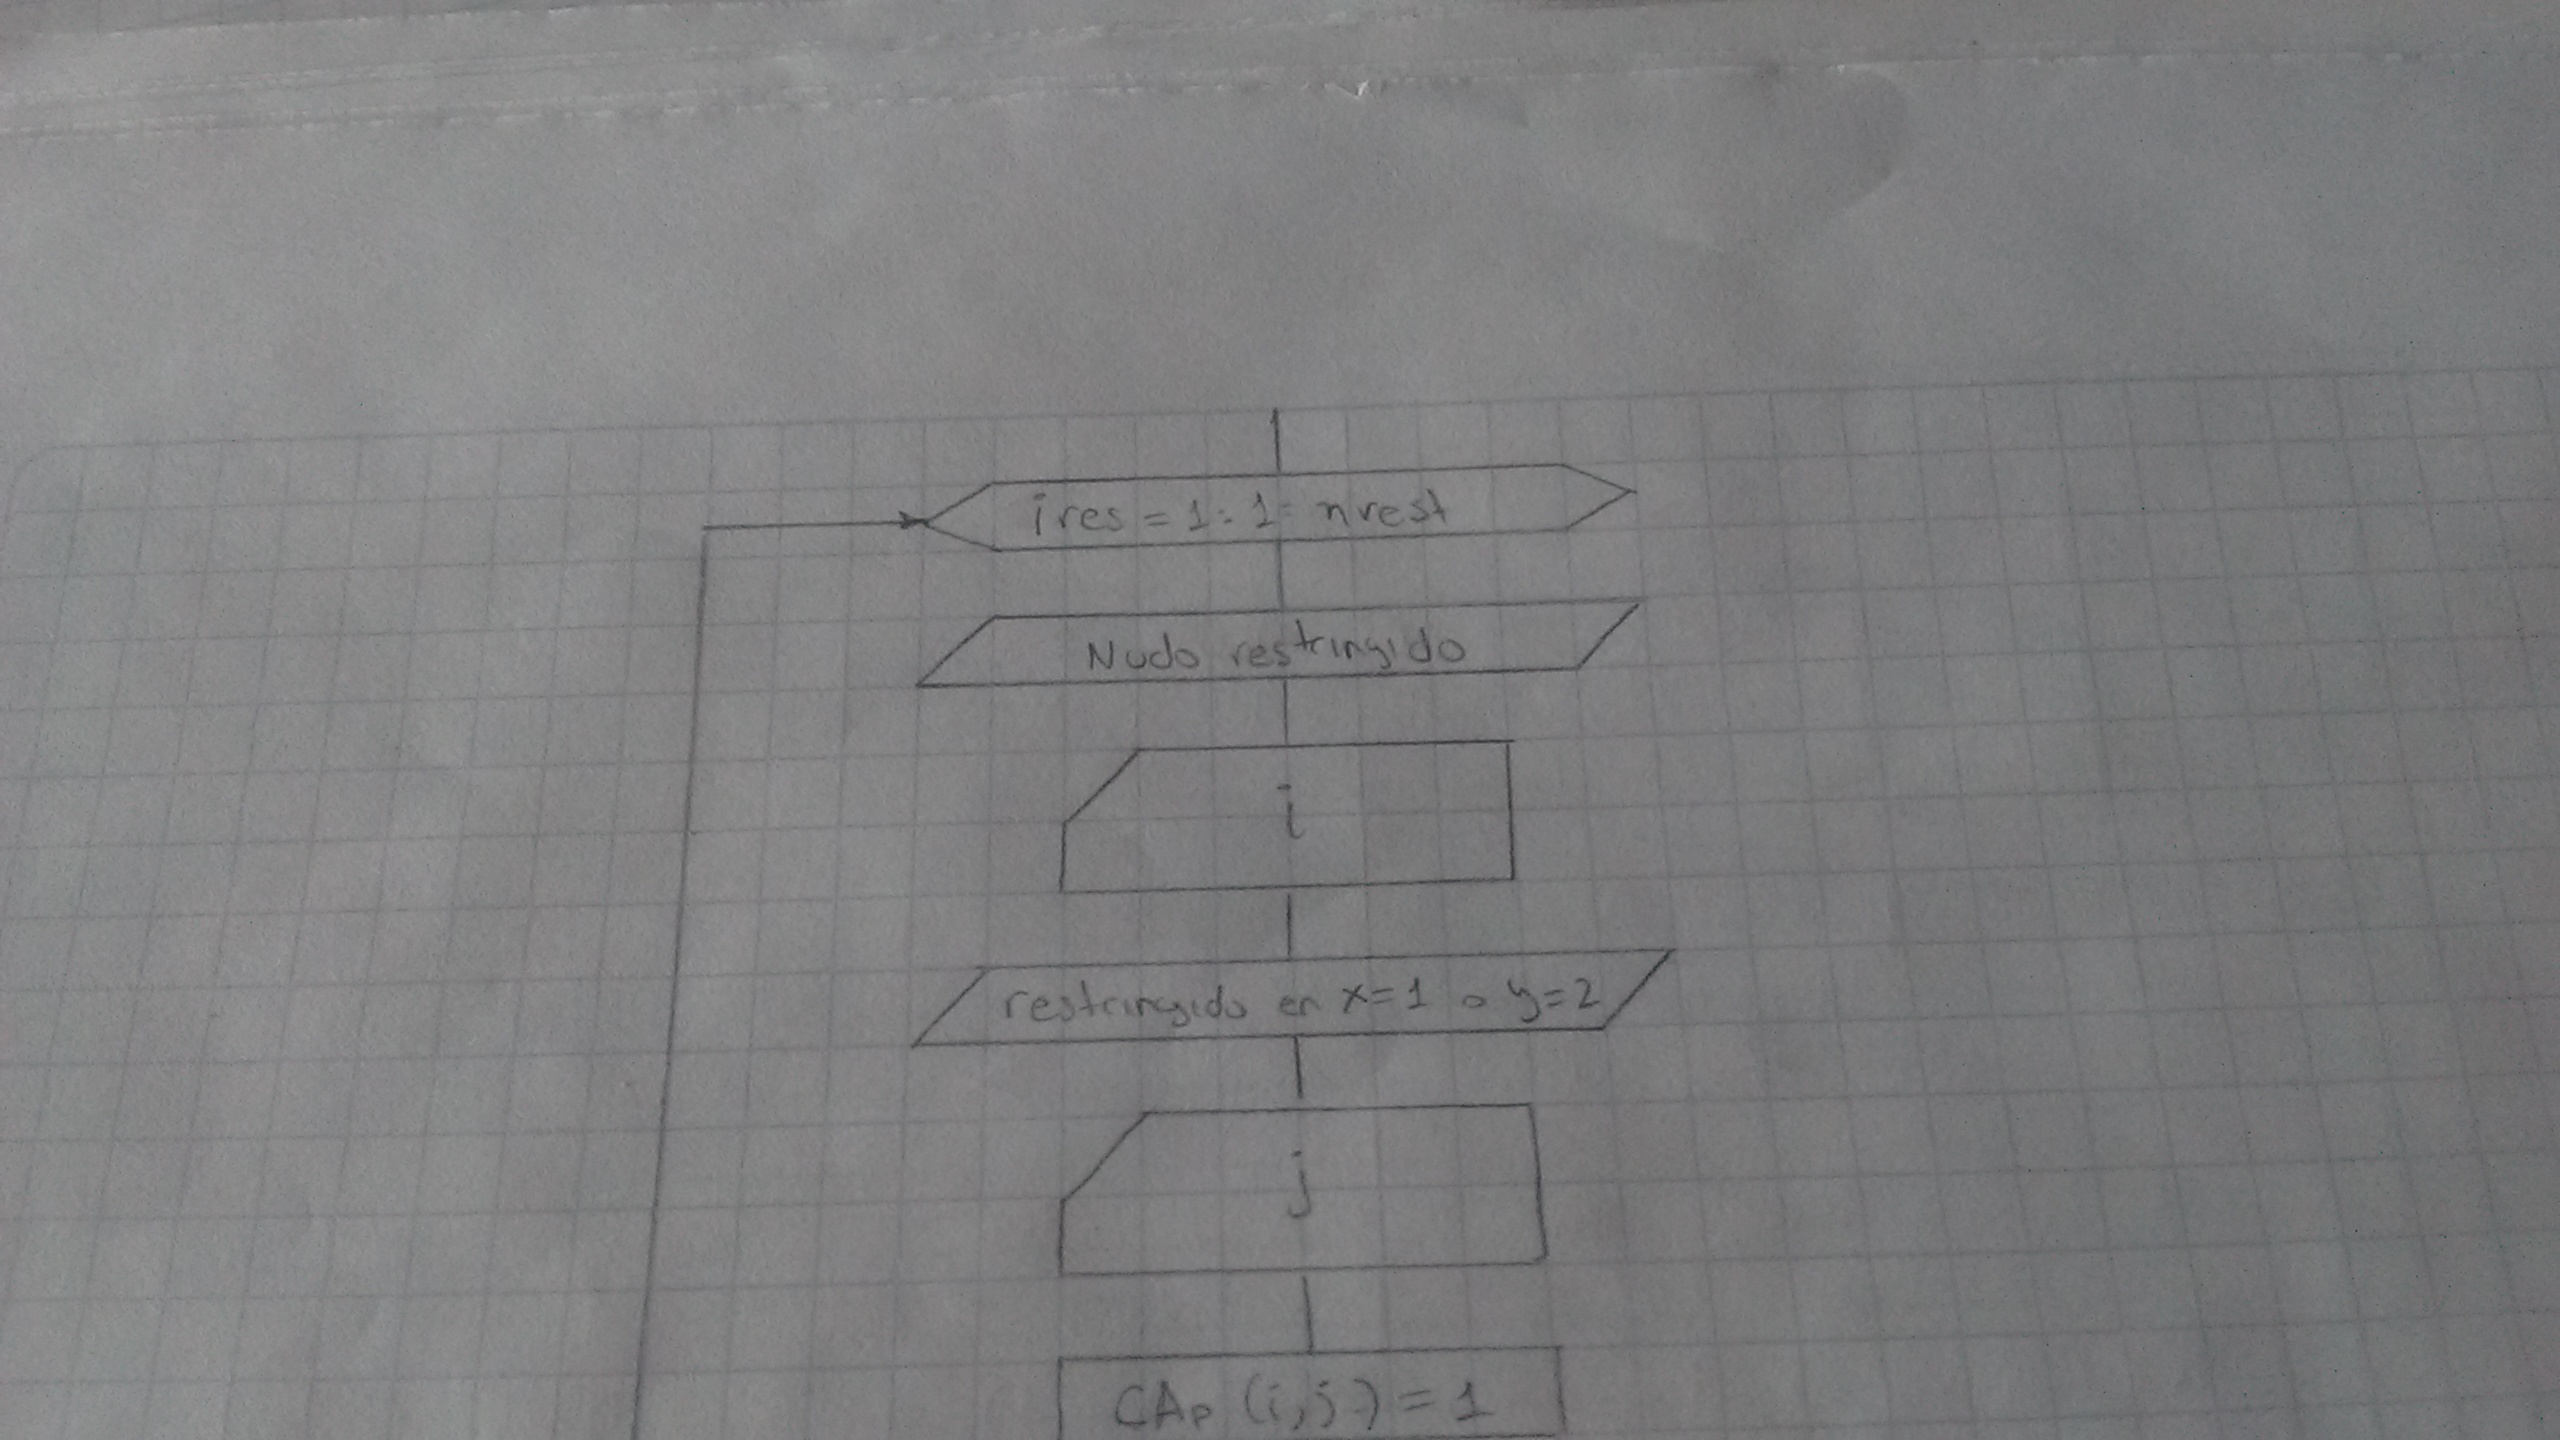 ires = 1:1: nrest
Nudo restringido
i
restringido en x=1 o y=2
j
CAp (i,j) = 1